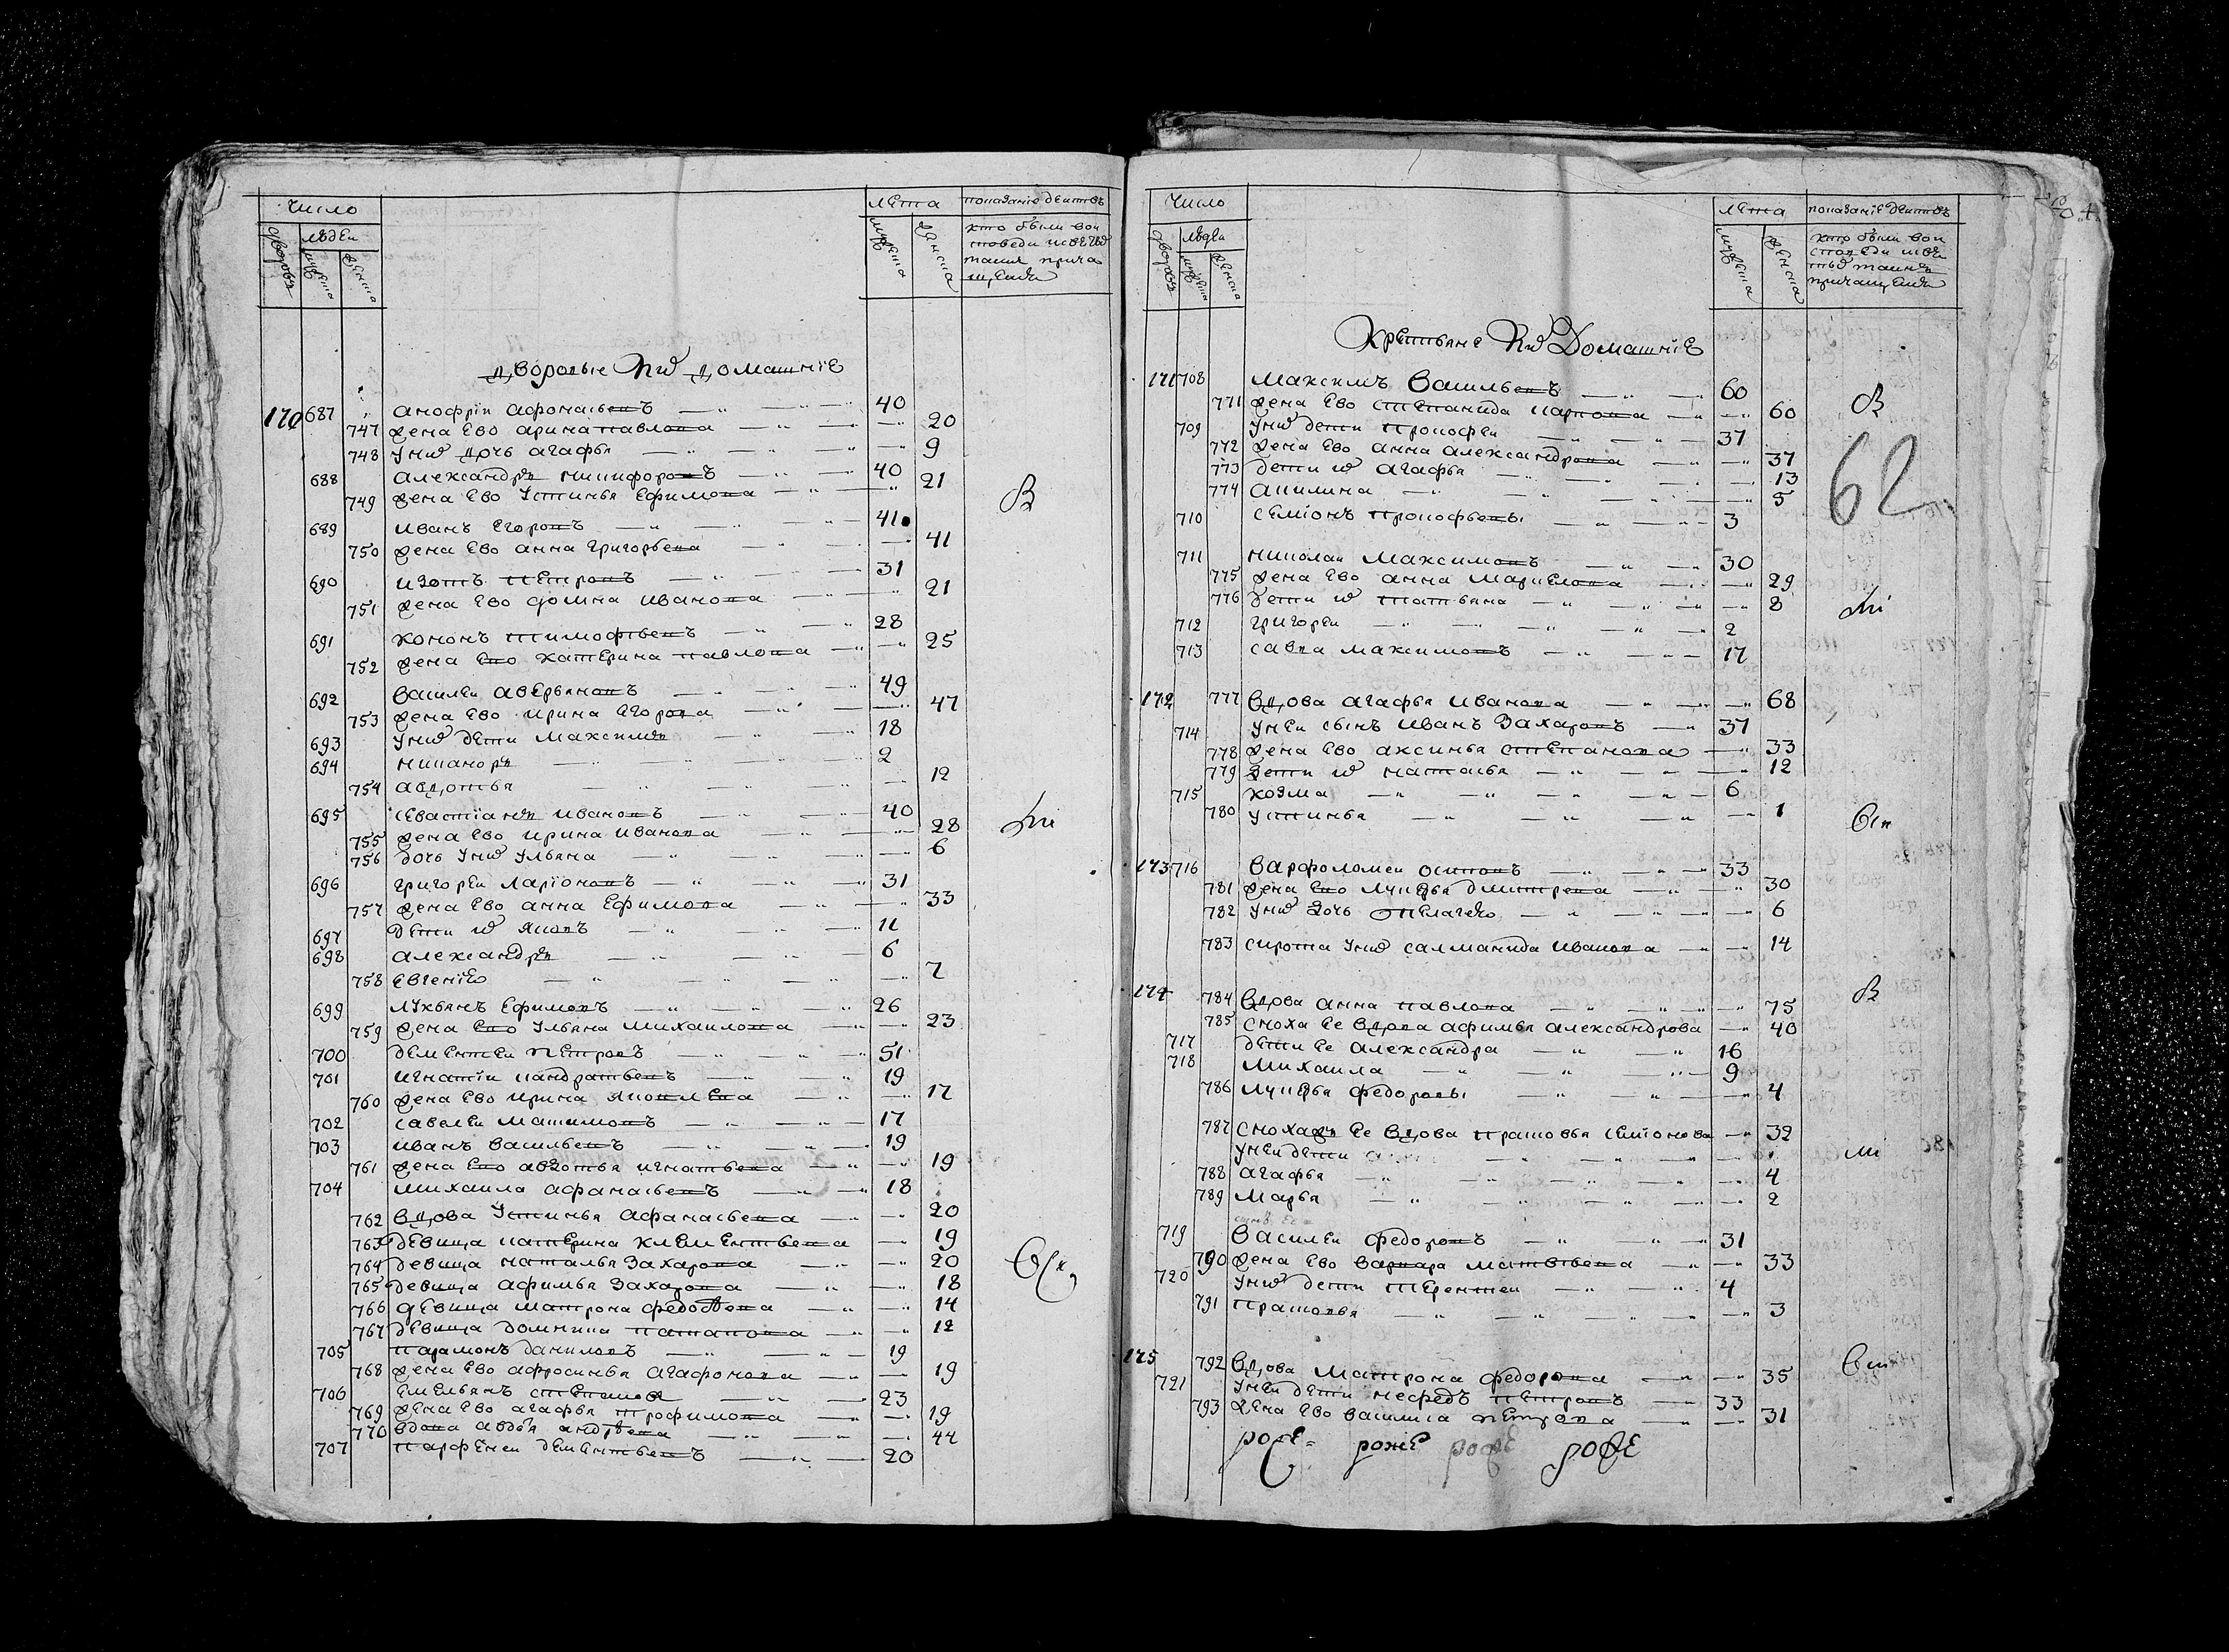 Число
людеи
дворовъ
мужеска
женска
лета
мужеска
женска
показание деиствъ
кто были во и
споведи и свѣтыѳ
таинъ прича
щения
дворовые и ихъ домашние
170 687 анофрiи афонасьевъ 40
747 жена ево арина павлова 20
748 у них дочь агафья 9
688 александръ никифоровъ 40
749 жена ево устинья ефимова 21
689 иванъ егоровъ 41
750 жена ево анна григорьева 41
690 изотъ петровъ 31
751 жена ево фомина иванова 21
691 кононъ тимофѣевъ 28
752 жена ево катерина павлова 25
692 василеи аверьяновъ 49
753 жена ево ирина егорова 47
693 у них дети максимъ 18
694 никаноръ 2
754 авдотья 12
695 севастiанъ ивановъ 40
755 жена ево ирина иванова 28
756 дочь у них ульяна 6
696 григореи ларiоновъ 31
757 жена ево анна ефимова 33
697 дети их яковъ 11
698 александръ 6
758 евгенiю 2
699 лукьянъ ефимовъ 26
759 жена ево ульяна михаилова 23
700 дементеи петровъ 51
701 игнатiи кандратьевъ 19
760 жена ево ирина яковлева 17
702 савелеи макимовъ 17
703 иванъ васильевъ 19
761 жена ево авдотья игнатьева 19
704 михаила афанасьевъ 18
762 вдова устинья афанасьева 20
763 девица катерина клементьева 19
764 девица наталья захарова 20
765 девица афимья захарова 18
766 девица матрона федотова 14
767 девица домника патапова 12
705 парамонъ даниловъ 19
768 жена ево афросинья агафонова 19
706 емельянъ степановъ 23
769 жена ево агафья трофимова 19
770 вдова авдѣя андреева 44
707 парфенеи дементьевъ 20
Число
людеи
дворовъ
мужеска
женска
лета
мужеска
женска
показание деиствъ
кто были во и
споведи и свѣ
тыѳ таинъ
причащения
Крестьяне и ихъ Домашнiе
62
171 708 максимъ васильевъ 60
771 жена ево степанида карпова 60
709 у них дети прокофеи 37
772 жена ево анна александрова 37
773 дети их агафья 13
774 акилина 5
710 семiонъ прокофьевы 3
711 николаи максимовъ 30
775 жена ево анна маркелова 29
776 дети их татьяна 8
712 григореи 2
713 савва максимовъ 17
172 777 вдова агафья иванова 68
714 у неи сынъ иванъ захаровъ 37
778 жена ево аксинья степанова 33
779 дети их наталья 12
715 козма 6
780 устинья 1
173 716 варфоломеи осиповъ 33
781 жена ево лукерья дмитрева 30
782 у них дочь пелагею 6
783 сирота у них салманида иванова 14
174 784 вдова анна павлова 75
785 сноха ее вдова афимья александрова 40
717 дети ее александра 16
718 михаила 9
786 лукерья федоровы 4
787 сноха ж ее вдова прасковья семiонова 32
у неи дети
788 агафья 4
789 марья 2
сынъ ее
719 василеи федоровъ 31
790 жена ево варвара матвѣева 33
720 у них дети терентеи 4
791 прасковья 3
175 792 вдова матрона федорова 35
721 у неи дети несфедъ петровъ 33
793 жена ево василиса петрова 31
роже роже роже роже